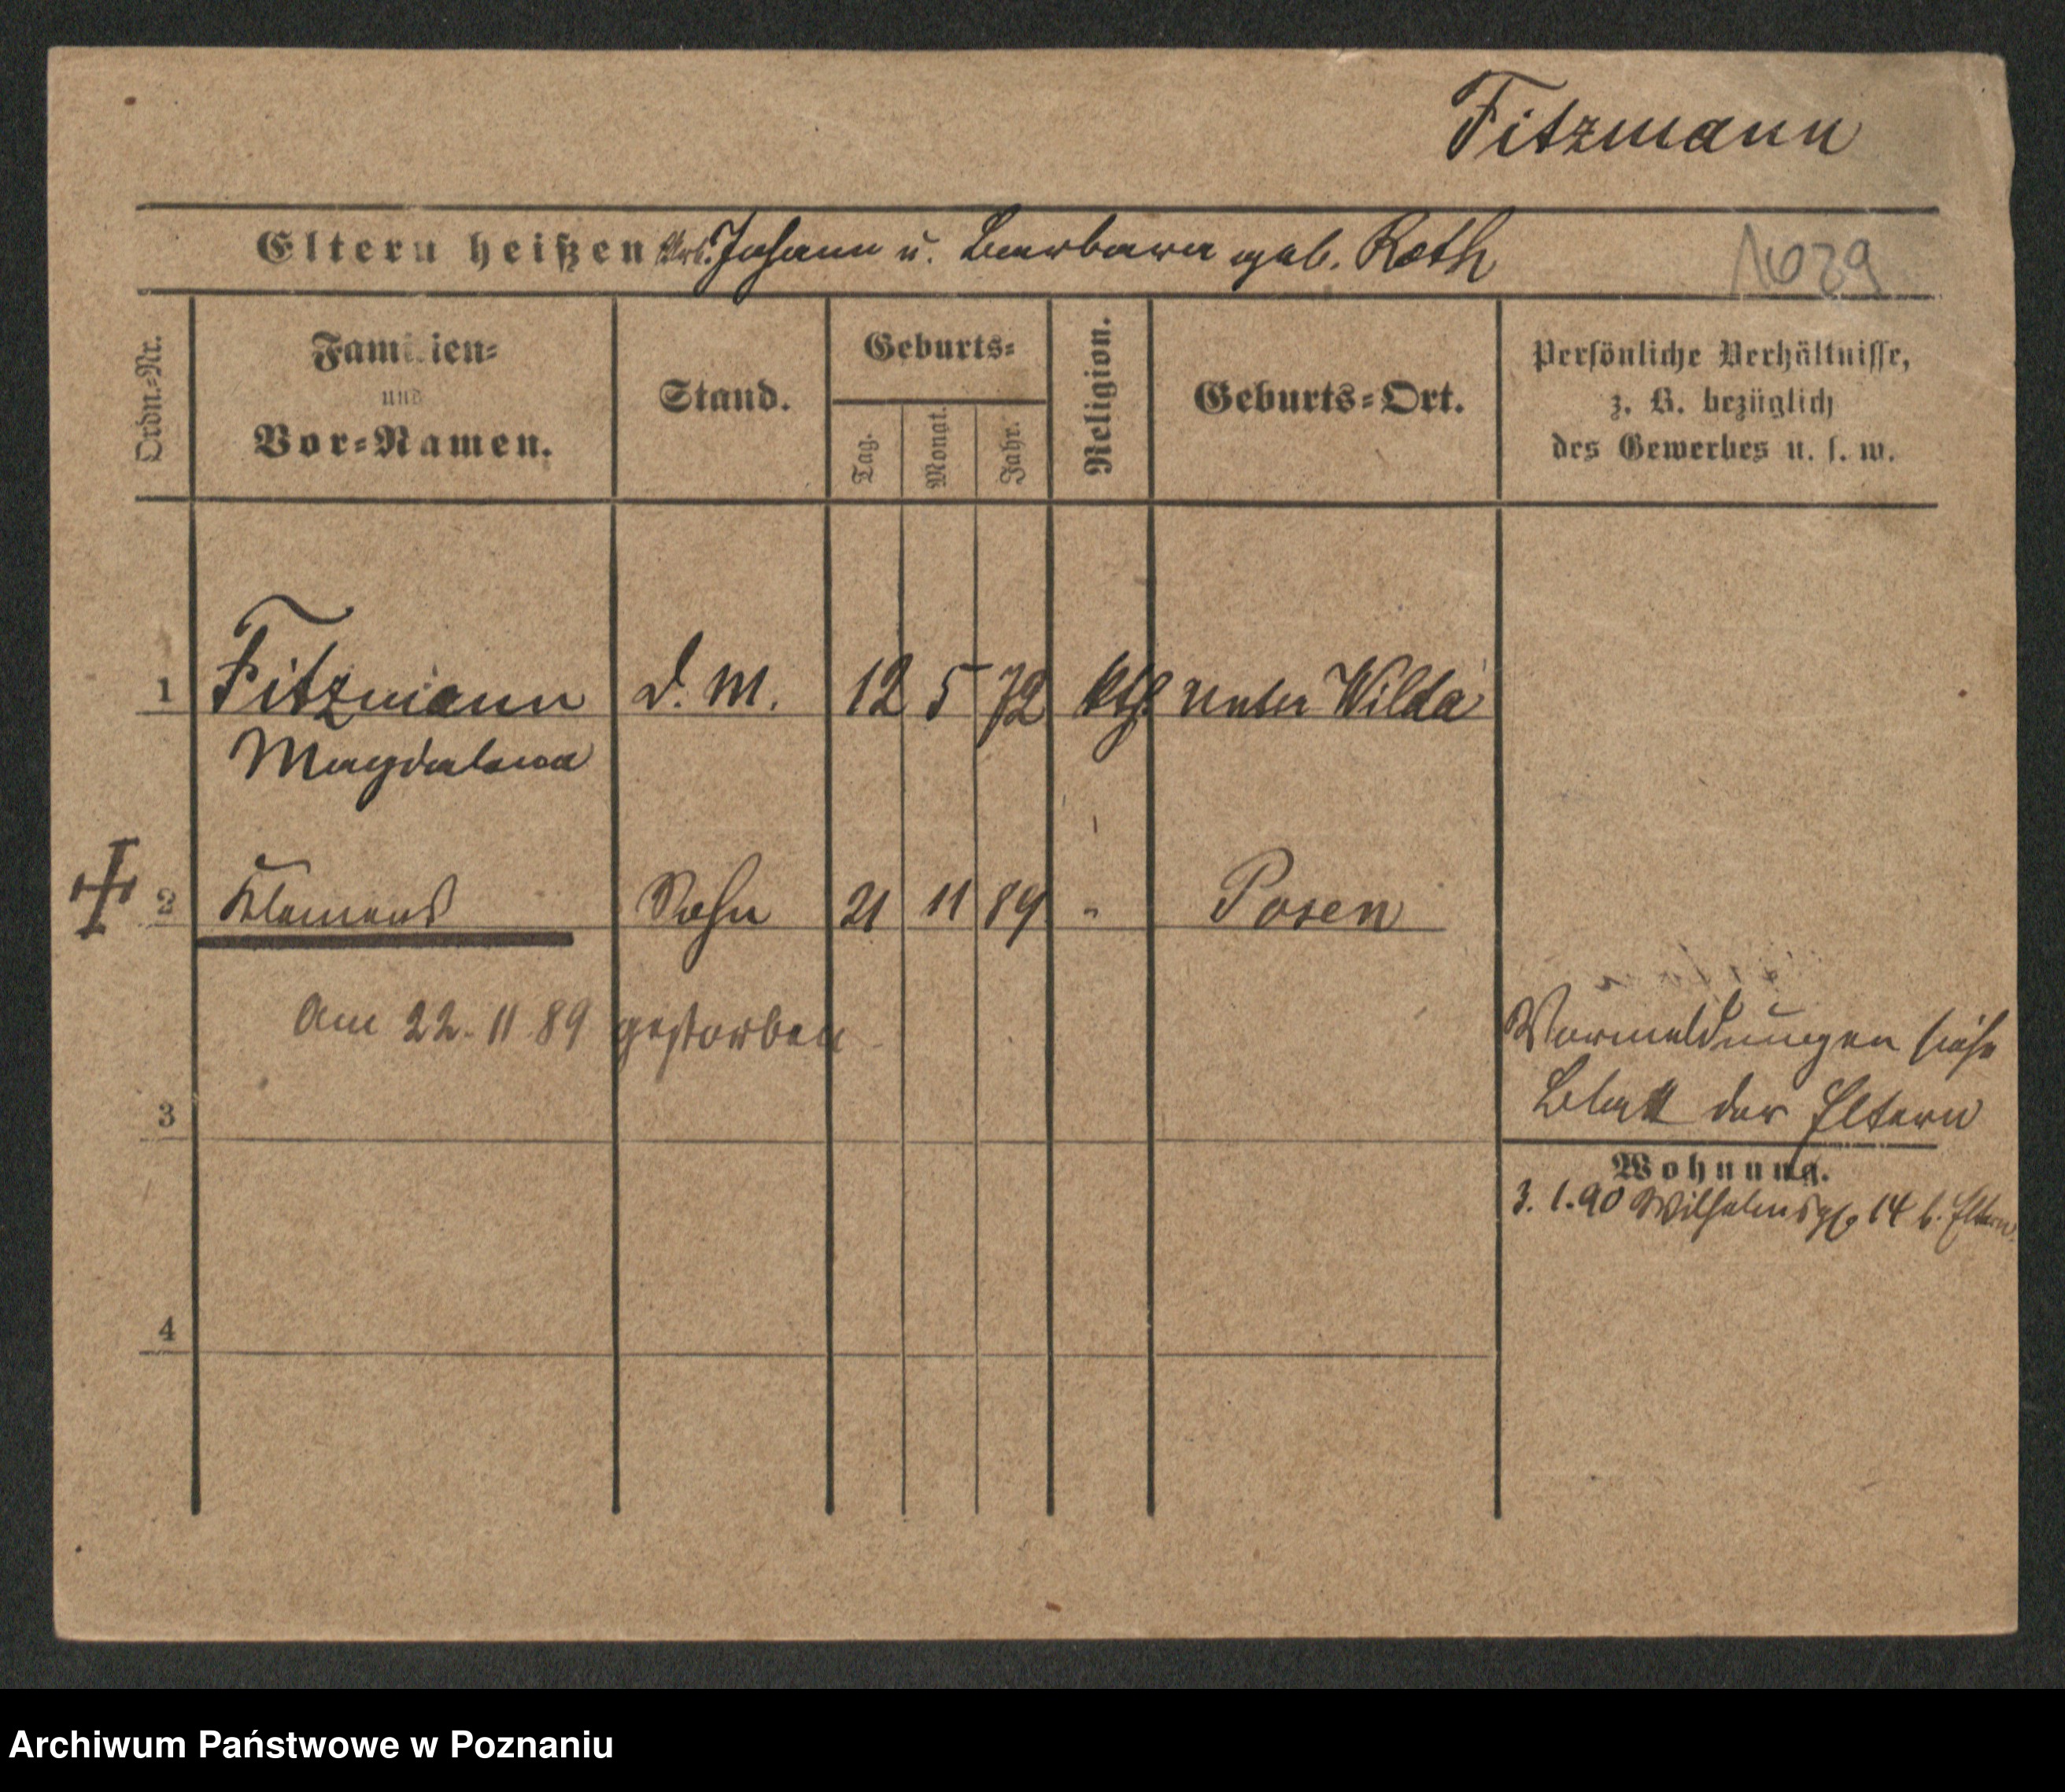 Fitzmann
Eltern heißen Arb. Johann u. Barbara geb. Roth
1029
Ordn.-Nr.
Familien-
und
Vor-Namen.
Stand.
Geburts-
Tag.
Monat.
Jahr.
Religion.
Geburts-Ort.
Persönliche Verhältnisse,
z. B. bezüglich
des Gewerbes u. s. w.
1 Fitzmann D. M. 12 5 72 kth. Unter Wilda
Magdalena
2 Klemens Sohn 21 11 89 " Posen
Am 22. 11 89 gestorben
Vormeldungen siehe
Blatt der Eltern
3
Wohnung.
3. 1. 90 Wilhelmspl. 14 b. Eltern
4
Archiwum Państwowe w Poznaniu